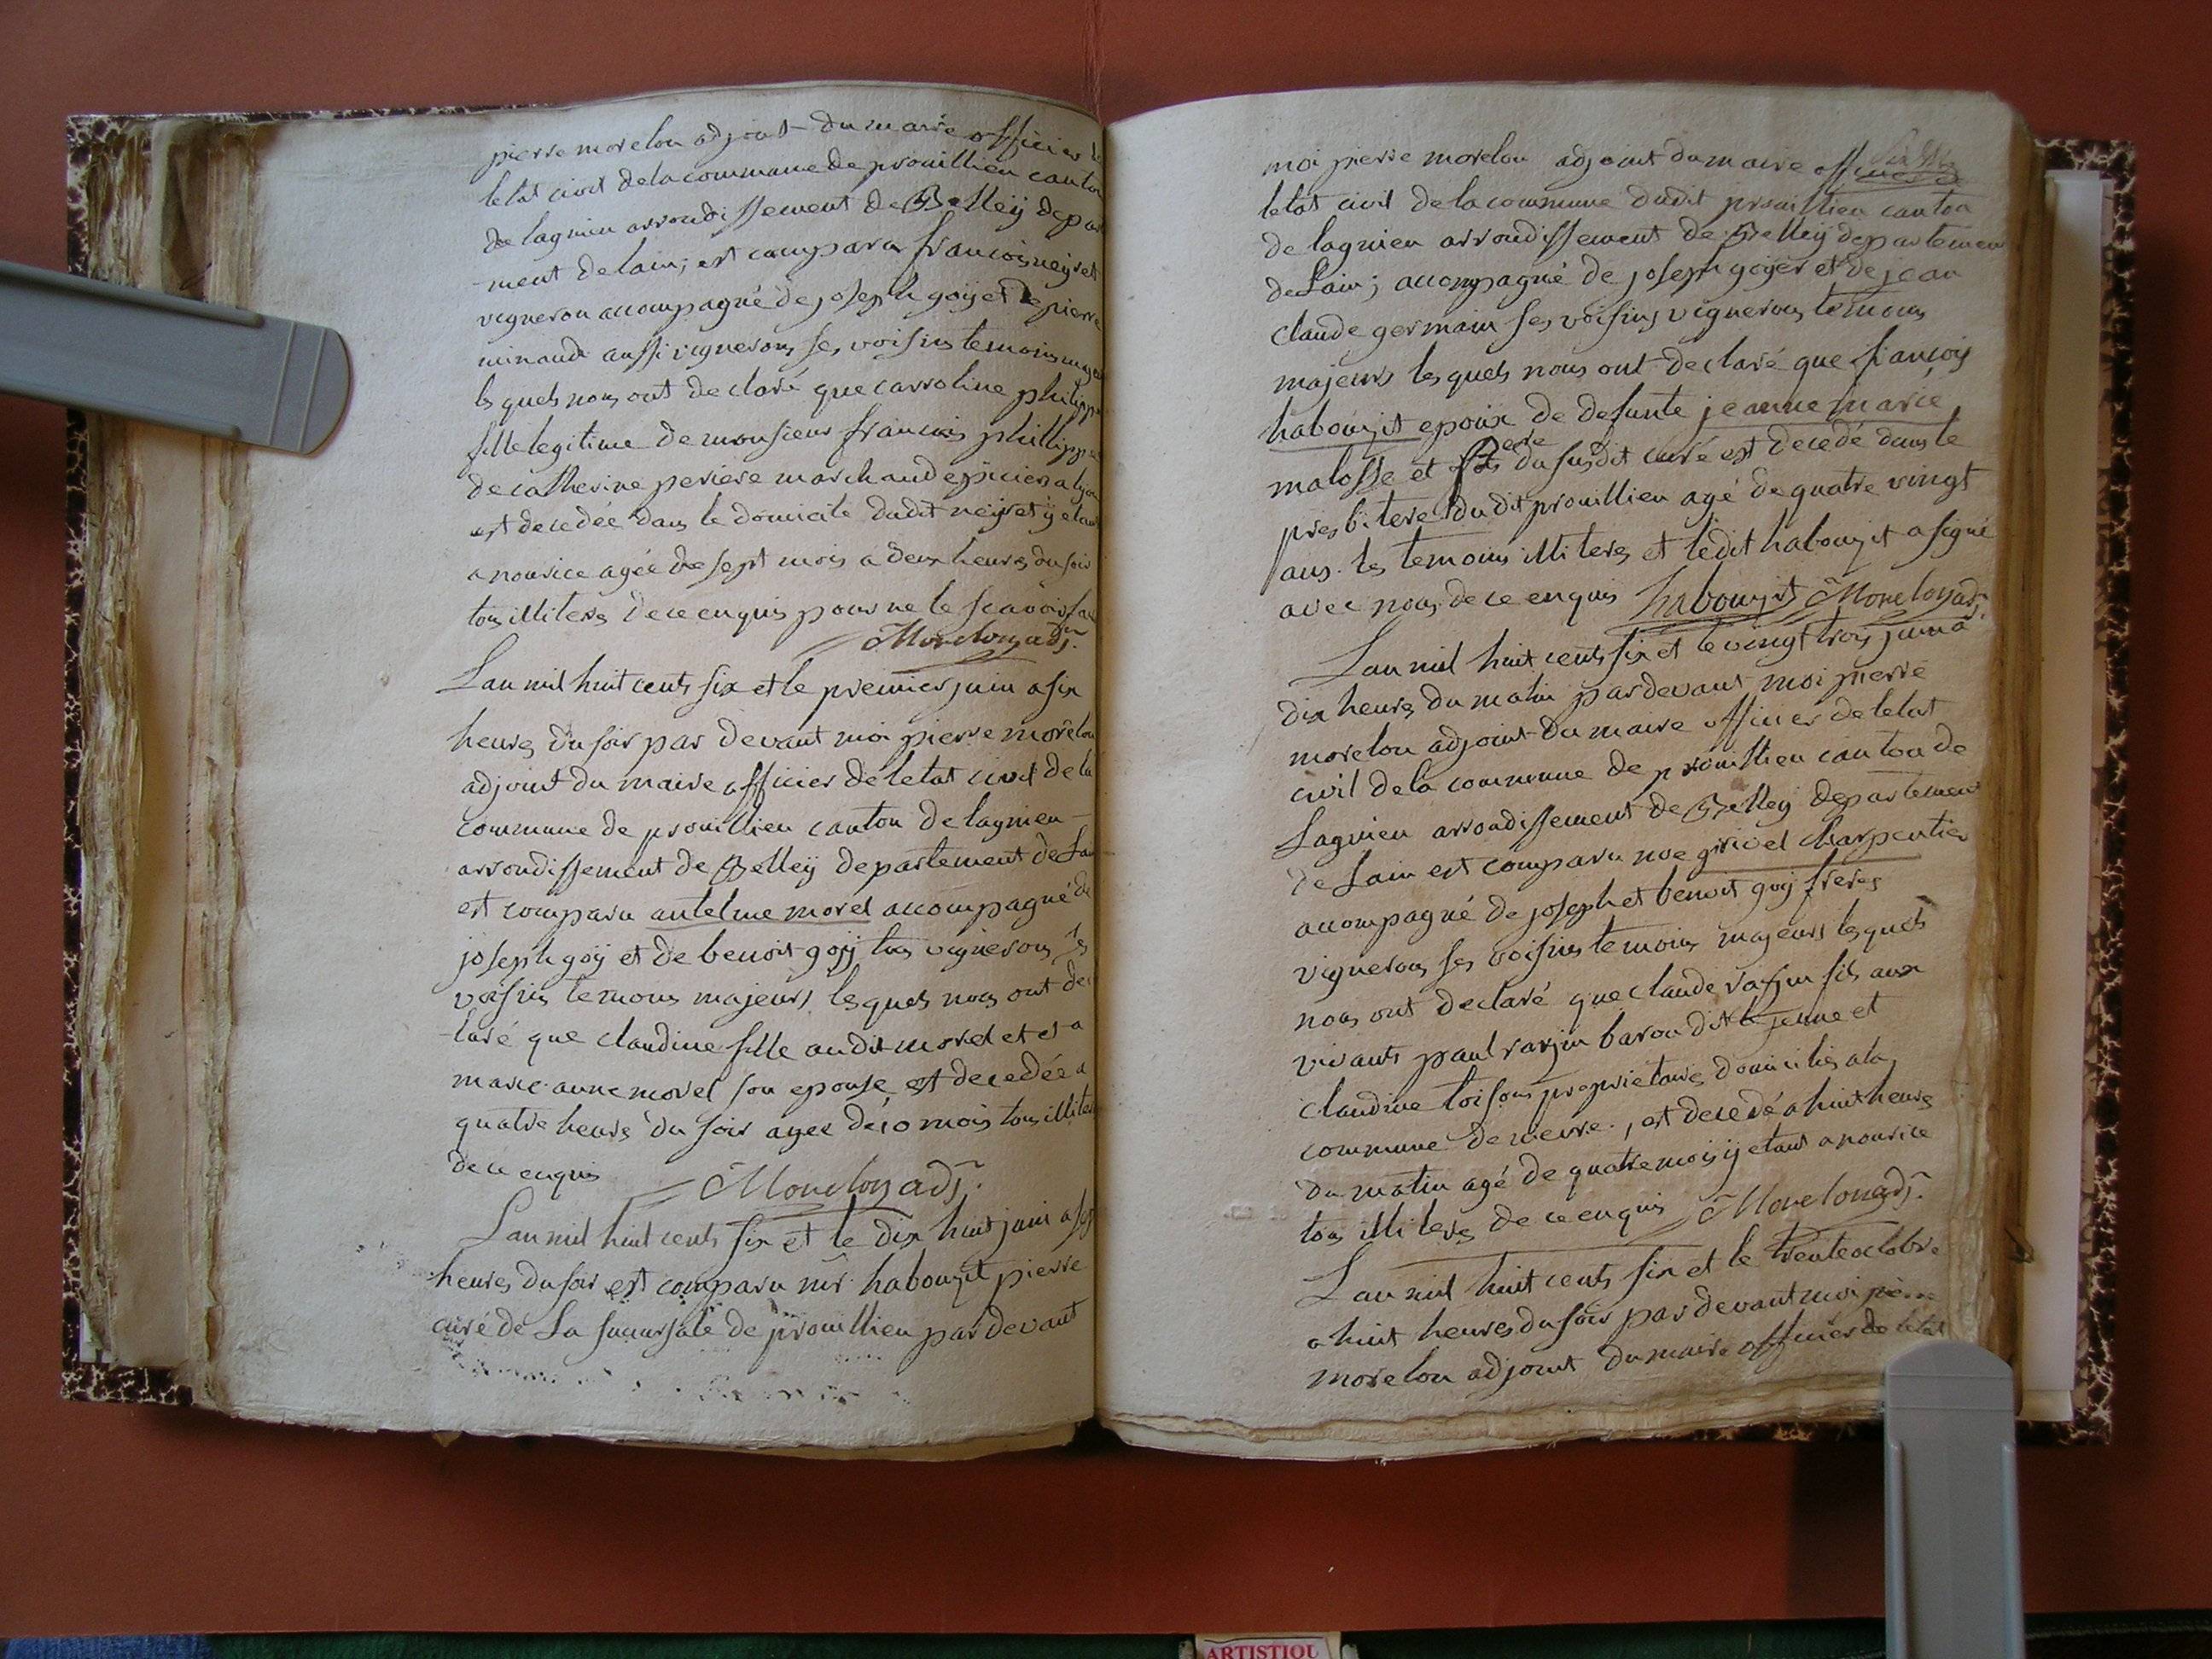 pierre morelon adjoint du maire officier
letat civil dela commune de prouillieu canton
de lagnieu arrondissement de Belleÿ depar
-ment delain; est comparu francois neÿret
vigneron accompagné de joseph goÿ et de pierre
minaude aussi vignerons ses voisins temoins
lesquels nous ont declaré que carroline philippe
fille legitime de monsieur francois phillippe
de catherine periere marchand epicier a lyon
est decedée dans le domicile dudit neÿret ÿ etant
a nourice agée de sept mois a deux heures du soir
tous illiteres de ce enquis pour ne le scavoir
Morelon adj.
Lan mil huit cents six et le premier juin a six
heures du soir par devant moi pierre morelon
adjoint du maire officier de letat civil de la
commune de prouillieu canton de lagnieu -
arrondissement de Belleÿ departement de Lain
est comparu antelme morel accompagné de
joseph goÿ et de benoit goÿ tous vignerons ses
voisins temoins majeurs lesquels nous ont dec
-laré que claudine fille audit morel et et a
marie anne morel son epouse est decedée a
quatre heures du soir agee de 10 mois tous illiteres
de ce enquis Morelon adj.
Lan mil huit cents six et le dix huit juin a sept
heures du soir est comparu mr habouzit pierre
curé de La sucursale de prouillieu par devant
moi pierre morelon adjoint du maire officier de
letat civil de la commune dudit prouillieu canton
de lagnieu arrondissement de Belleÿ departement
de Lain; accompagné de joseph goÿer et de jean
claude germain ses voisins vignerons temoins
majeurs lesquels nous ont declaré que francois
habouzit epoux de defunte jeanne marie
malosse et pere du susdit curé est decedé dans le
presbitere dudit prouillieu agé de quatre vingt
ans. les temoins illiteres et ledit habouzit a signé
avec nous de ce enquis habouzit Morelon adj.
Lan mil huit cents six et le vingt trois juin a
dix heures du matin par devant moi pierre
morelon adjoint du maire officier de letat
civil de la commune de prouillieu canton de
Lagnieu arrondissement de Belleÿ departement
de Lain est comparu noe grivel charpentier
accompagné de joseph et benoit goÿ freres
vignerons ses voisins temoins majeurs lesquels
nous ont declaré que claude varjin fils aux
vivants paul varjin baron dit le jeune et
claudine loisons proprietaires domicilies a la
commune de vievre, est decedé a huit heures
du matin agé de quatre mois ÿ etant a nourice
tous illiteres de ce enquis Morelon adj.
Lan mil huit cents six et le trente octobre
a huit heures du soir par devant moi pierre
morelon adjoint du maire officier de letat
ARTISTIQU